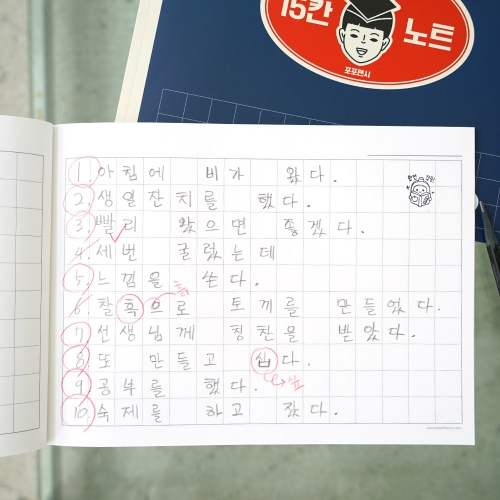 15칸 노트
포포팬시
1. 아침에 비가 왔다.
2. 생일잔치를 했다.
3. 빨리 왔으면 좋겠다.
4. 세번 굴렀는데
5. 느낌을 쓴다.
6. 찰흑으로 토끼를 만들었다.
흙
7. 선생님께 칭찬을 받았다.
8. 또 만들고 십다.
싶
9. 공부를 했다.
10. 숙제를 하고 잤다.